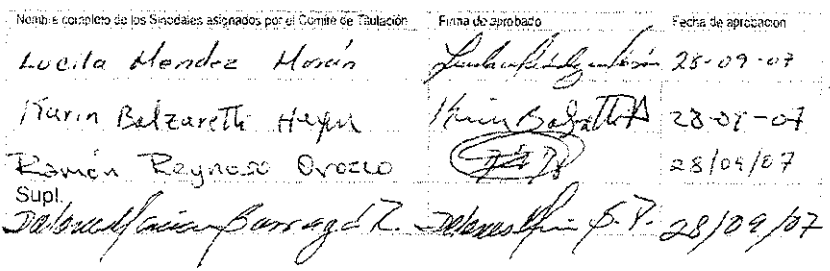 Nombre completo de los Sinodales asignados por el Comité de Titulación Firma de aprobado Fecha de aprobación
Lucila Mendez Morán 28-09-07
Karin Balzaretti Heym Karin Balzaretti H 28-09-07
Ramón Reynoso Orozco 28/09/07
Supl.
Dolores María Barragá R. Dolores 28/09/07